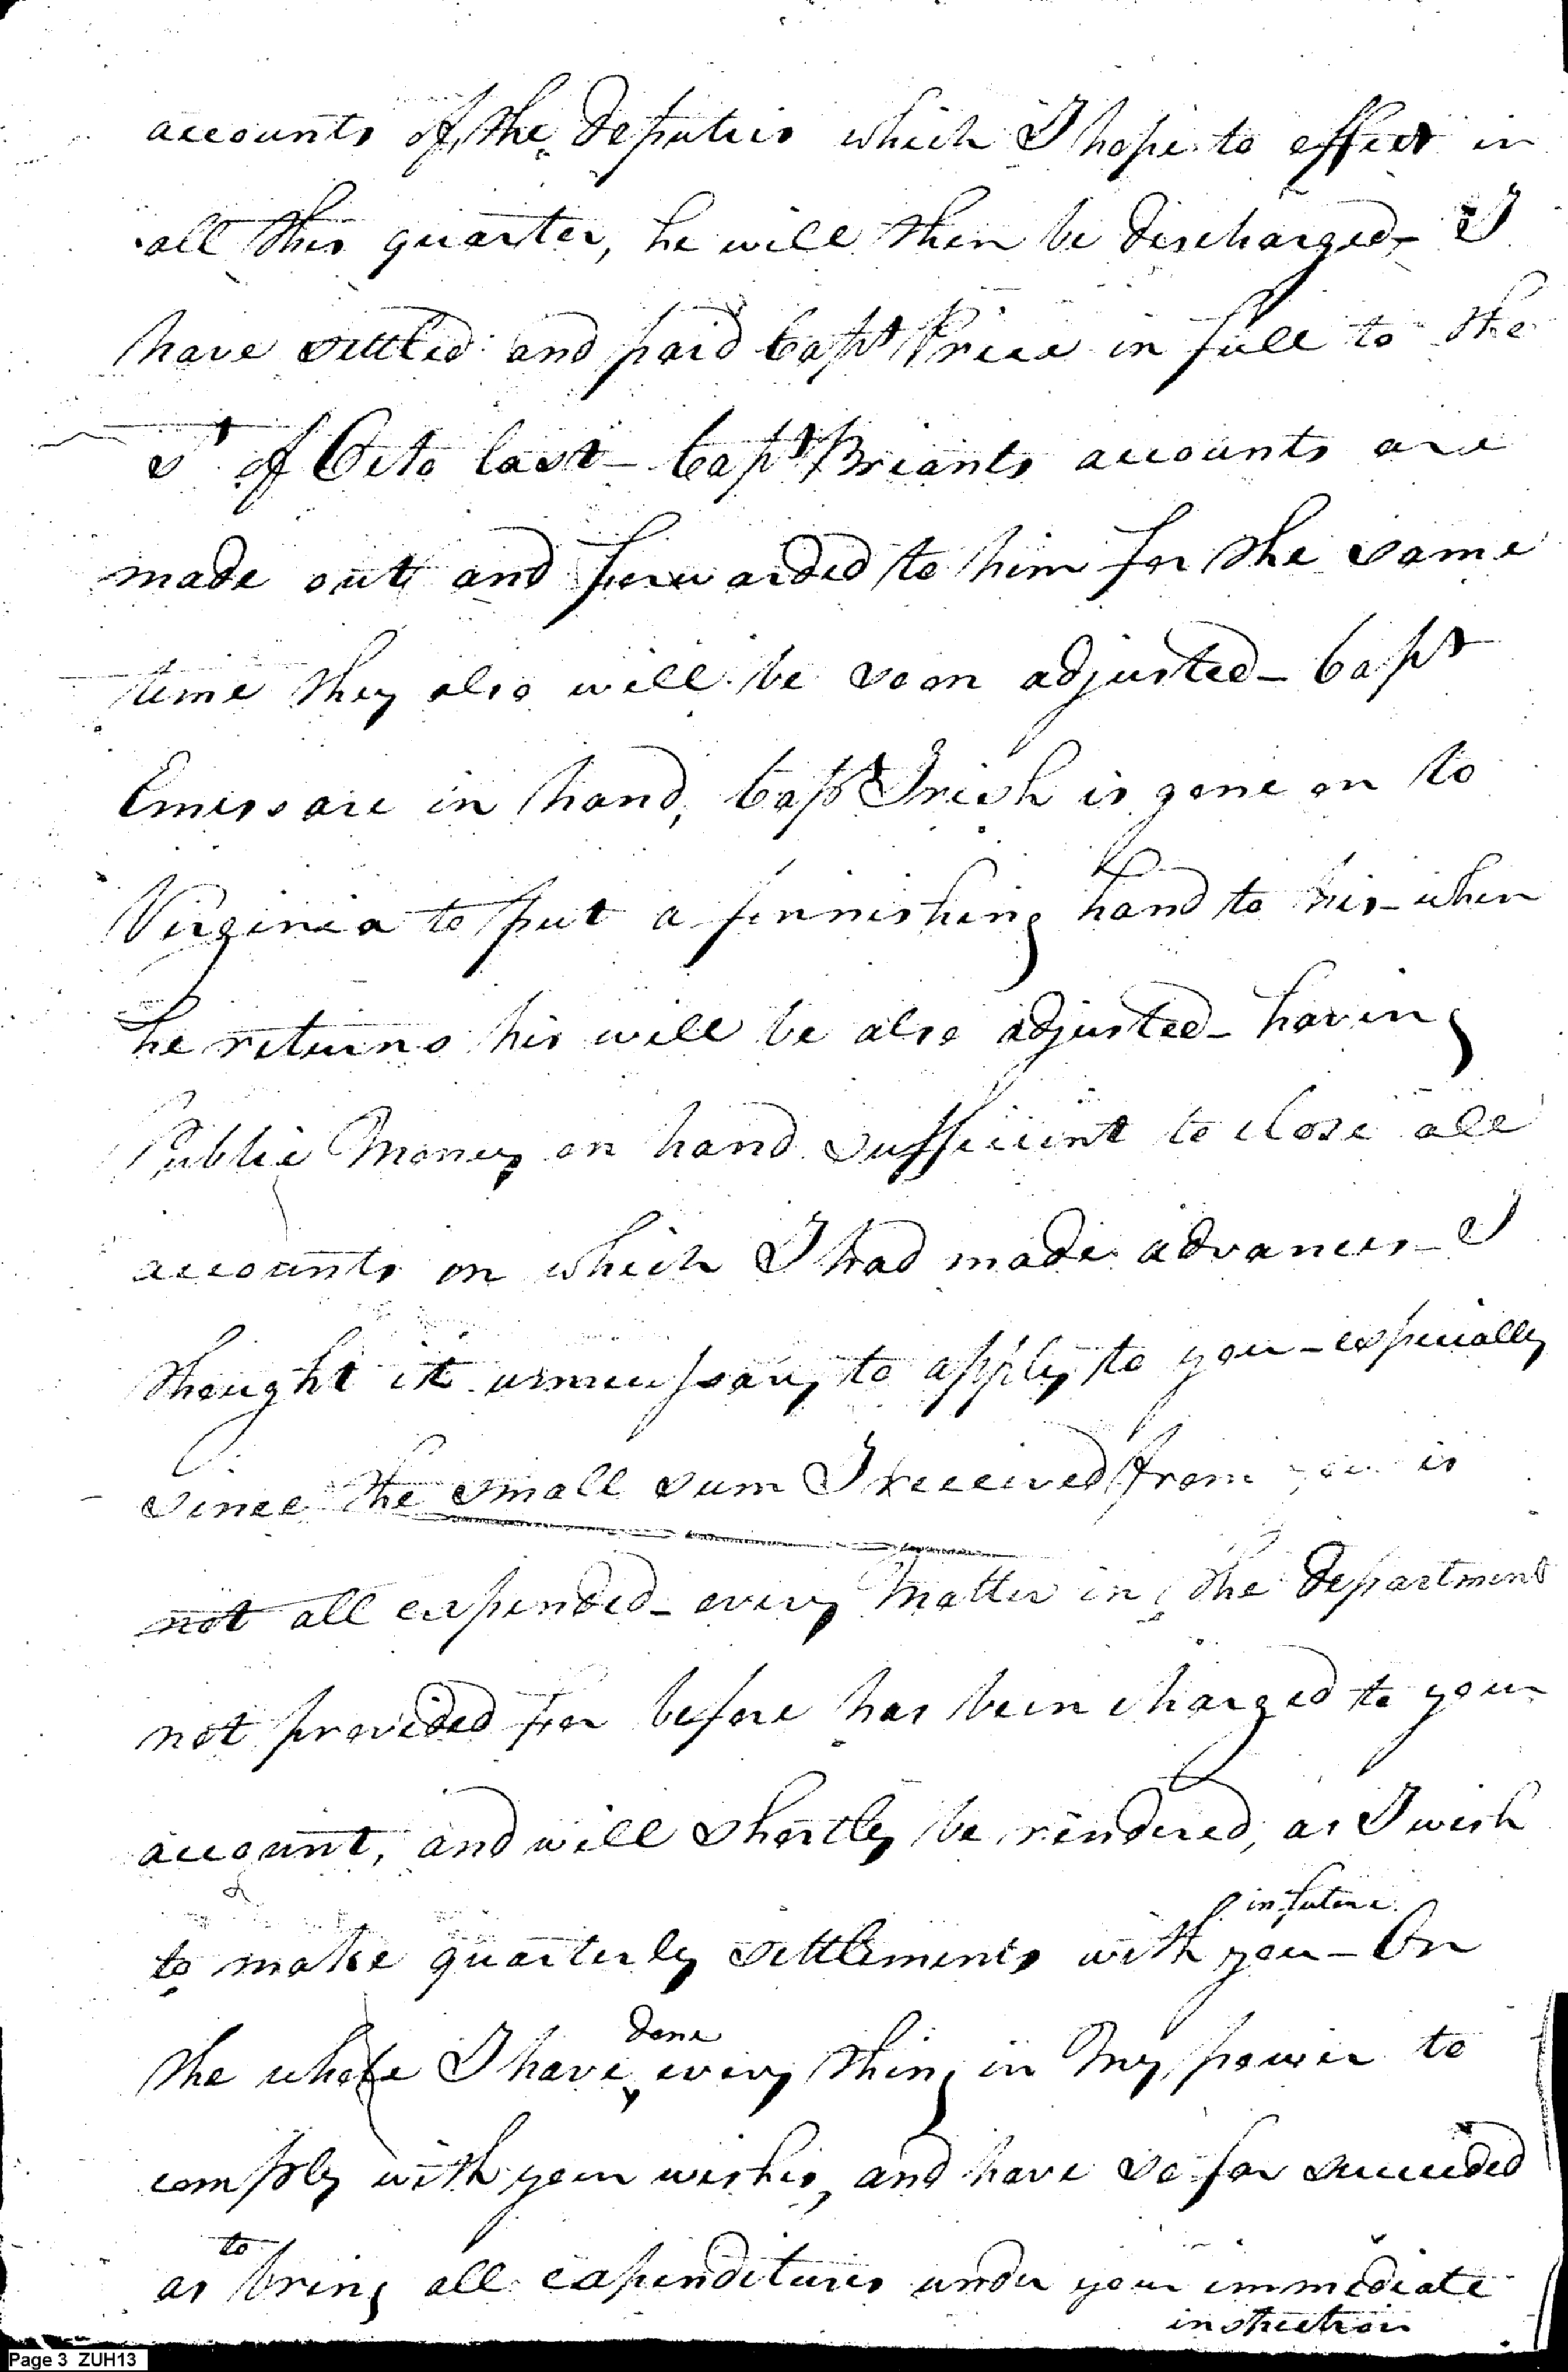 accounts of the Deputies which I hope to effect in
all this quarter, he will then be discharged - I
have settled and paid Capt Price in full to the
of Octo last - Capt Briants accounts are
made out and forwarded to him for the same
time they also will be soon adjusted - Capt
are in hand, Capt Irish is gone on to
Virginia to put a finnishing hand to his - when
he returns his will be also adjusted - having
Public Money on hand sufficient to close all
accounts on which I had made advances - I
thought it unnecessary to apply to you - especially
since the small sum I received from you is
not all expended - every Matter in the Department
not provided for before has been charged to your
account, and will shortly be rendered, as I wish
in future
to make quarterly settlements with you - On
done
the whole I have every thing in My power to
comply with your wishes, and have so far succeeded
to
as bring all expenditures under your immediate
inspection
Page 3 ZUH13